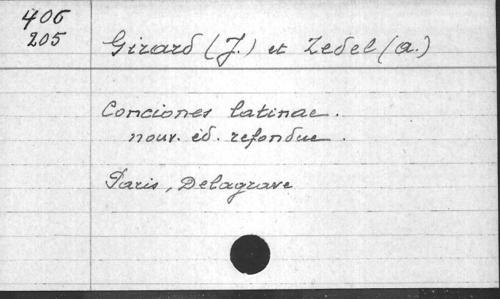 406
205
Girard (J.) et Zedel (A.)
Conciones latinae.
nouv. éd. refondue.
Paris, Delagrave